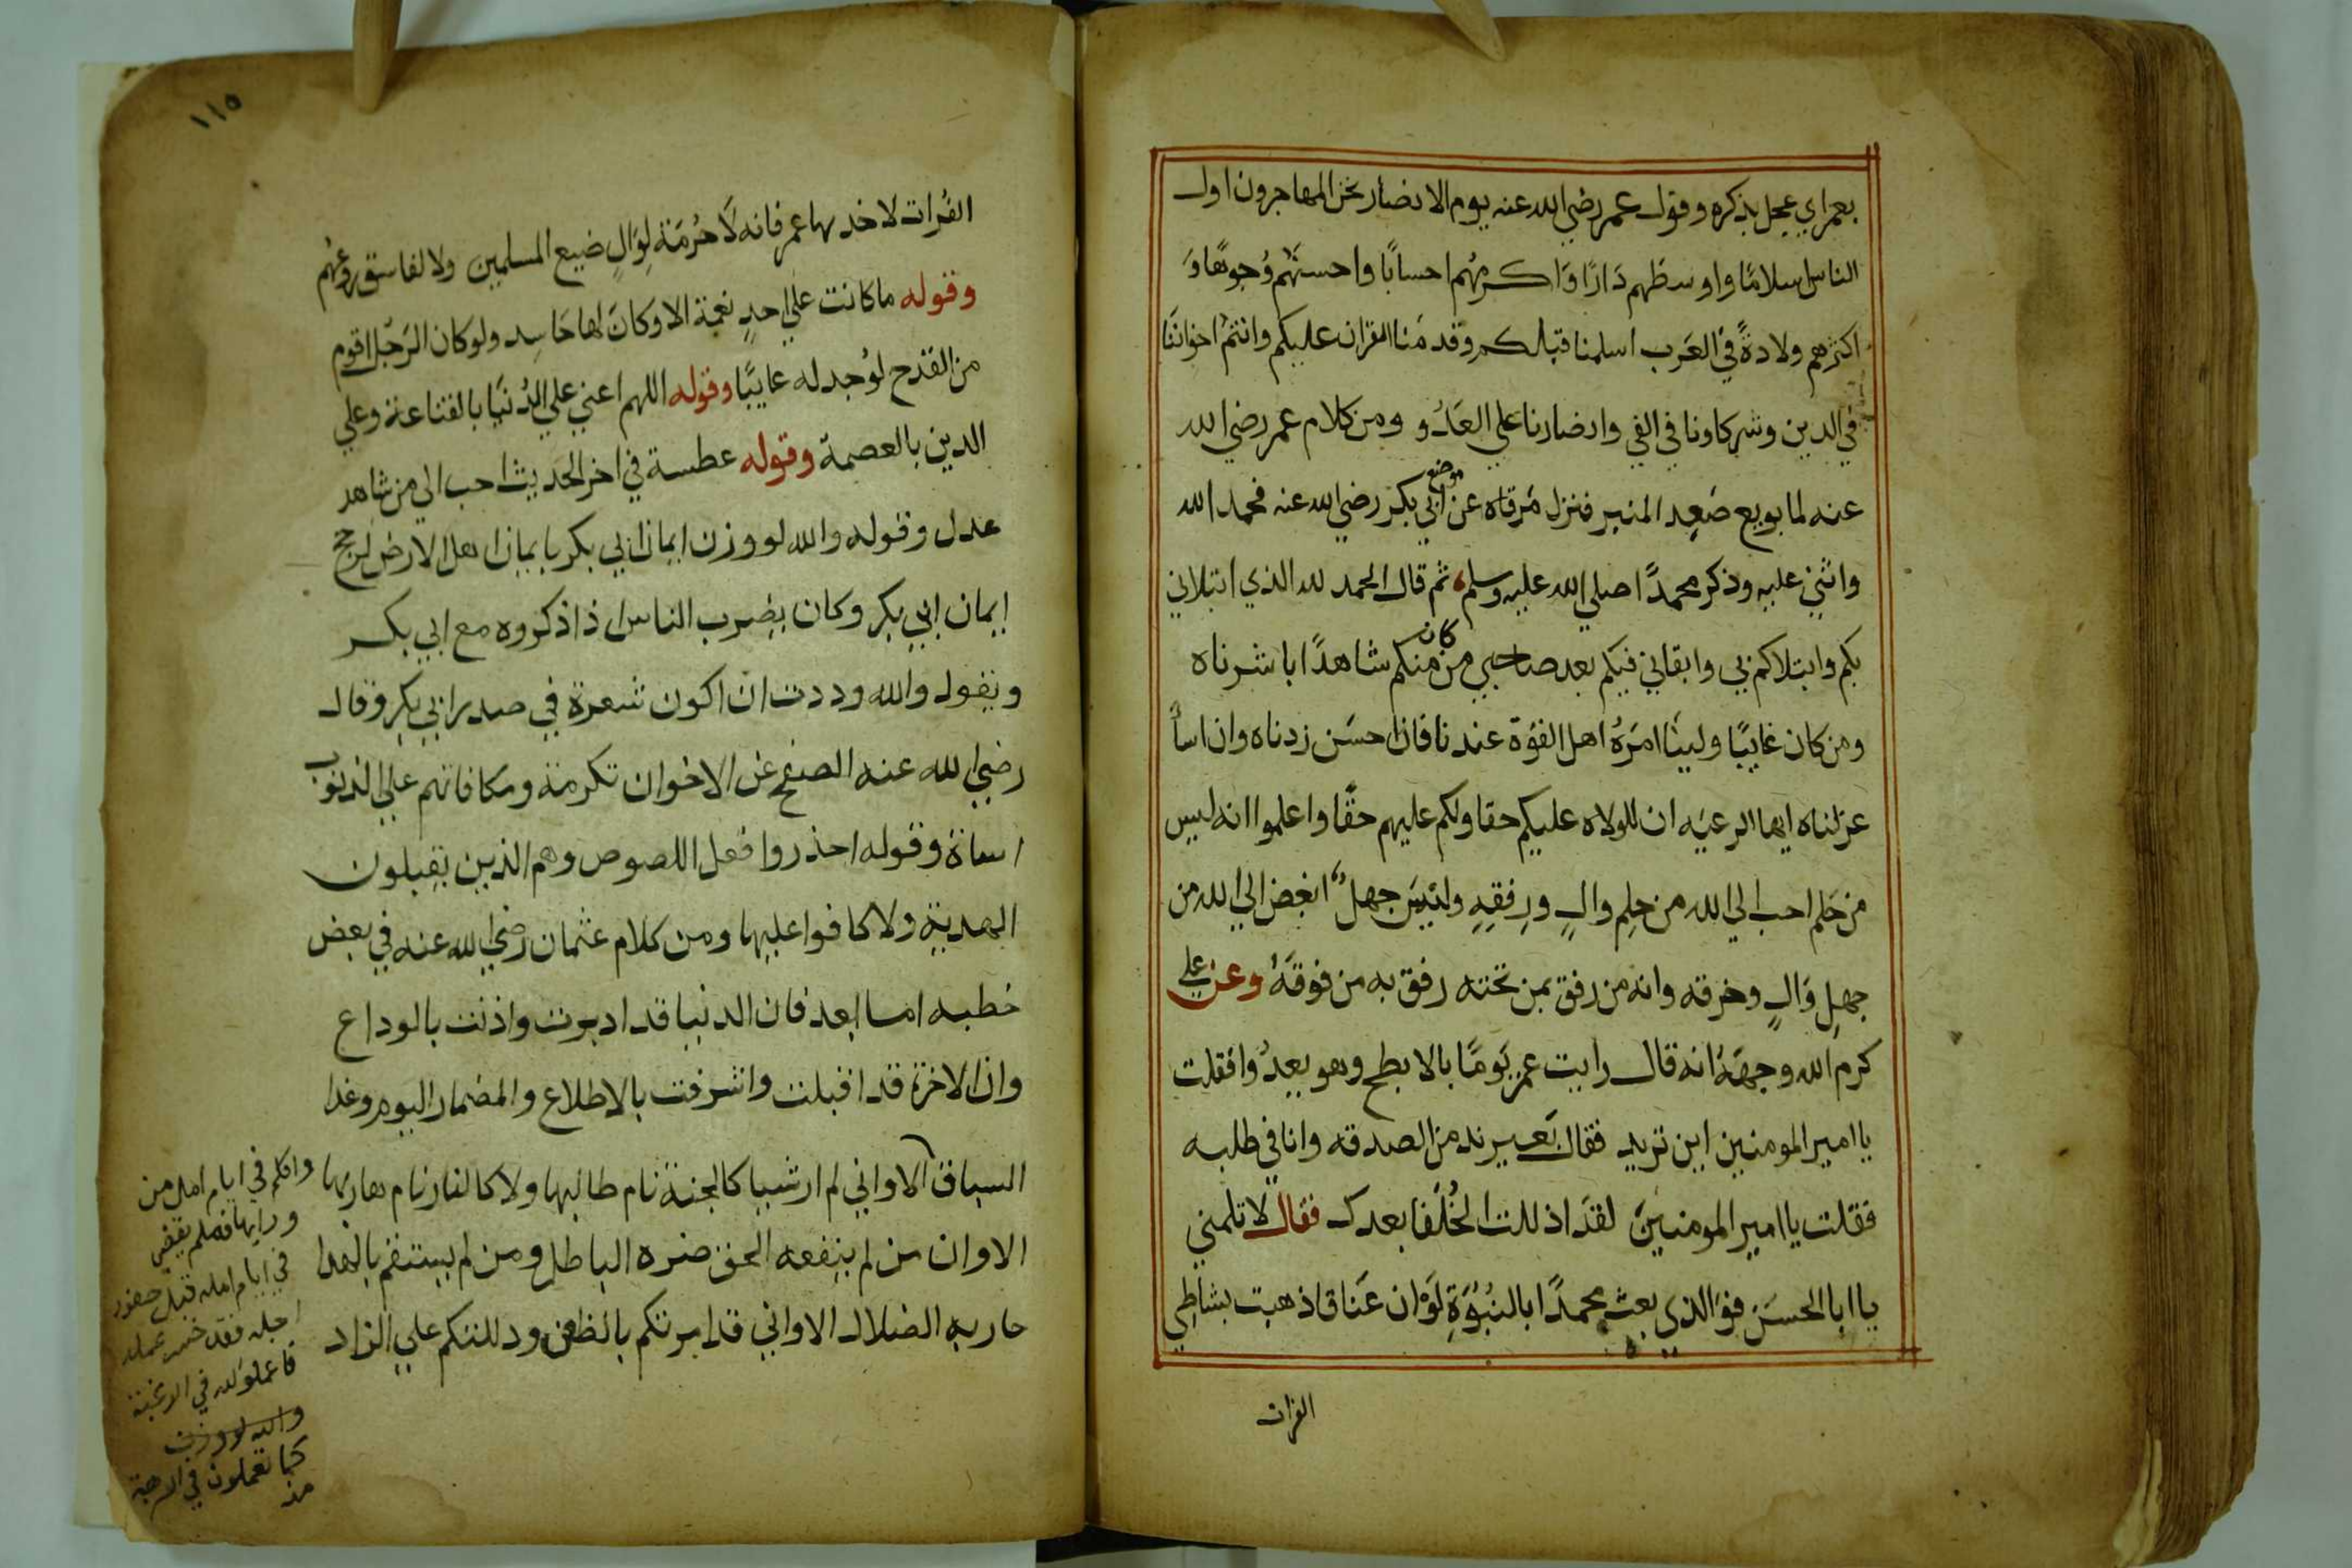 بعمراي عجل بذكره وقول عمر رضي الله عنه يوم الانصار نحن المهاجرون اول
الناس اسلامًا واوسطهم دَارًا وَاكرمهُم احسابًا واحسنهُم وُجوهًا وَ
اكثرهم ولادةً في العَرب اسلمنا قبلكم وقدمَنا القران عليكم وانتمُ اخواننَا
في الدين وشركاونا في الفي وانصارنا علي العَدُو ومن كلام عمر رضي الله
عنه لما بويع صَعِد المنبر فنزل مَرقاه عن موضع ابي بكر رضي الله عنه فحمد الله
واثني عليه وذكر محمدًا صلي الله عليه وسلم ثم قال الحمد لله الذي ابتلاني
بكم وابتلاكم بي وابقاني فيكم بعد صاحبي من كان منكم شاهدًا باشرناه
ومن كان غايبًا ولينَا امرَهُ اهل القوّة عندنا فان احسَن زدناه وان اساَ
عزلناه ايها الرعيَه ان للولاه عليكم حقا ولكم عليهم حقًا واعلموا انه ليس
من حَلم احب الي الله من حِلِم والٍ ورِفقِهِ وليسَ جهلٌ ابغض الي الله من
جهلِ وَالٍ وخرقه وانه من رفق بمن تحته رفق به من فوقهَُ وعن علي
كرم الله وجههَُ انه قال رايت عمر يَومًا بالابطح وهو يعدُوا فقلت
يا امير المومنين اين تريد فقال بَعير ند من الصدقه وانا في طلبه
فقلت يا امير المومنينَ لقدَ اذللت الخُلَفا بعدك فقال لا تلمني
يا ابا الحسَنَ فوَالذي بعث محمدًا بالنبُوَةِ لوَ ان عَنَاقا ذهبت بشاطِي
الفرات
١١٥
الفُرات لاخد بها عمر فانه لاَ حُرمَة لِوَالٍ ضيع المسلمين ولا لفاسق روعهُم
وقوله ما كانت علي احدٍ نعمة الا وكانَ لها حَاسِد ولو كان الرَجُل اقوم
من القدح لوُجد له عايبًا وقوله اللهم اعني علي الدُنيَا بالقناعة وعلي
الدين بالعصمة وقوله عطسة في اخر الحديث احب الي من شاهد
عدل وقوله والله لو وزن ايمان ابي بكر بايمان اهل الارض لرجح
ايمان ابي بكر وكان يضرب الناس اذا ذكروه مع ابي بكر
ويقول والله وددت ان اكون شعرة في صدر ابي بكر وقال
رضي الله عنه الصفح عن الاخوان تكرمة ومكافاتهم علي الذنوب
اساة وقوله احذروا فعل اللصوص وهم الذين يقبلون
الهدية ولا كافوا عليها ومن كلام عثمان رضي الله عنه في بعض
خطبه اما بعد فان الدنيا قد ادبرت واذنت بالوداع
وان الاخرة قد اقبلت واشرفت بالاطلاع والمضمار اليوم وغدا
السباق الا واني لم ار شيا كالجنة نام طالبها ولا كالنار نام هاربها
الا وان من لم ينفعه الحق ضره الباطل ومن لم يستقم بالهدا
حار به الضلال الا واني قد امرتكم بالظعن ودللتكم علي الزاد
وانكم في ايام امل من
ورايها
في ايام امله قبل حضور
اجله فقد خسر عمله
فاعملوا لله في الرغبة
والله لو وزن
كما تعملون في الرهبة